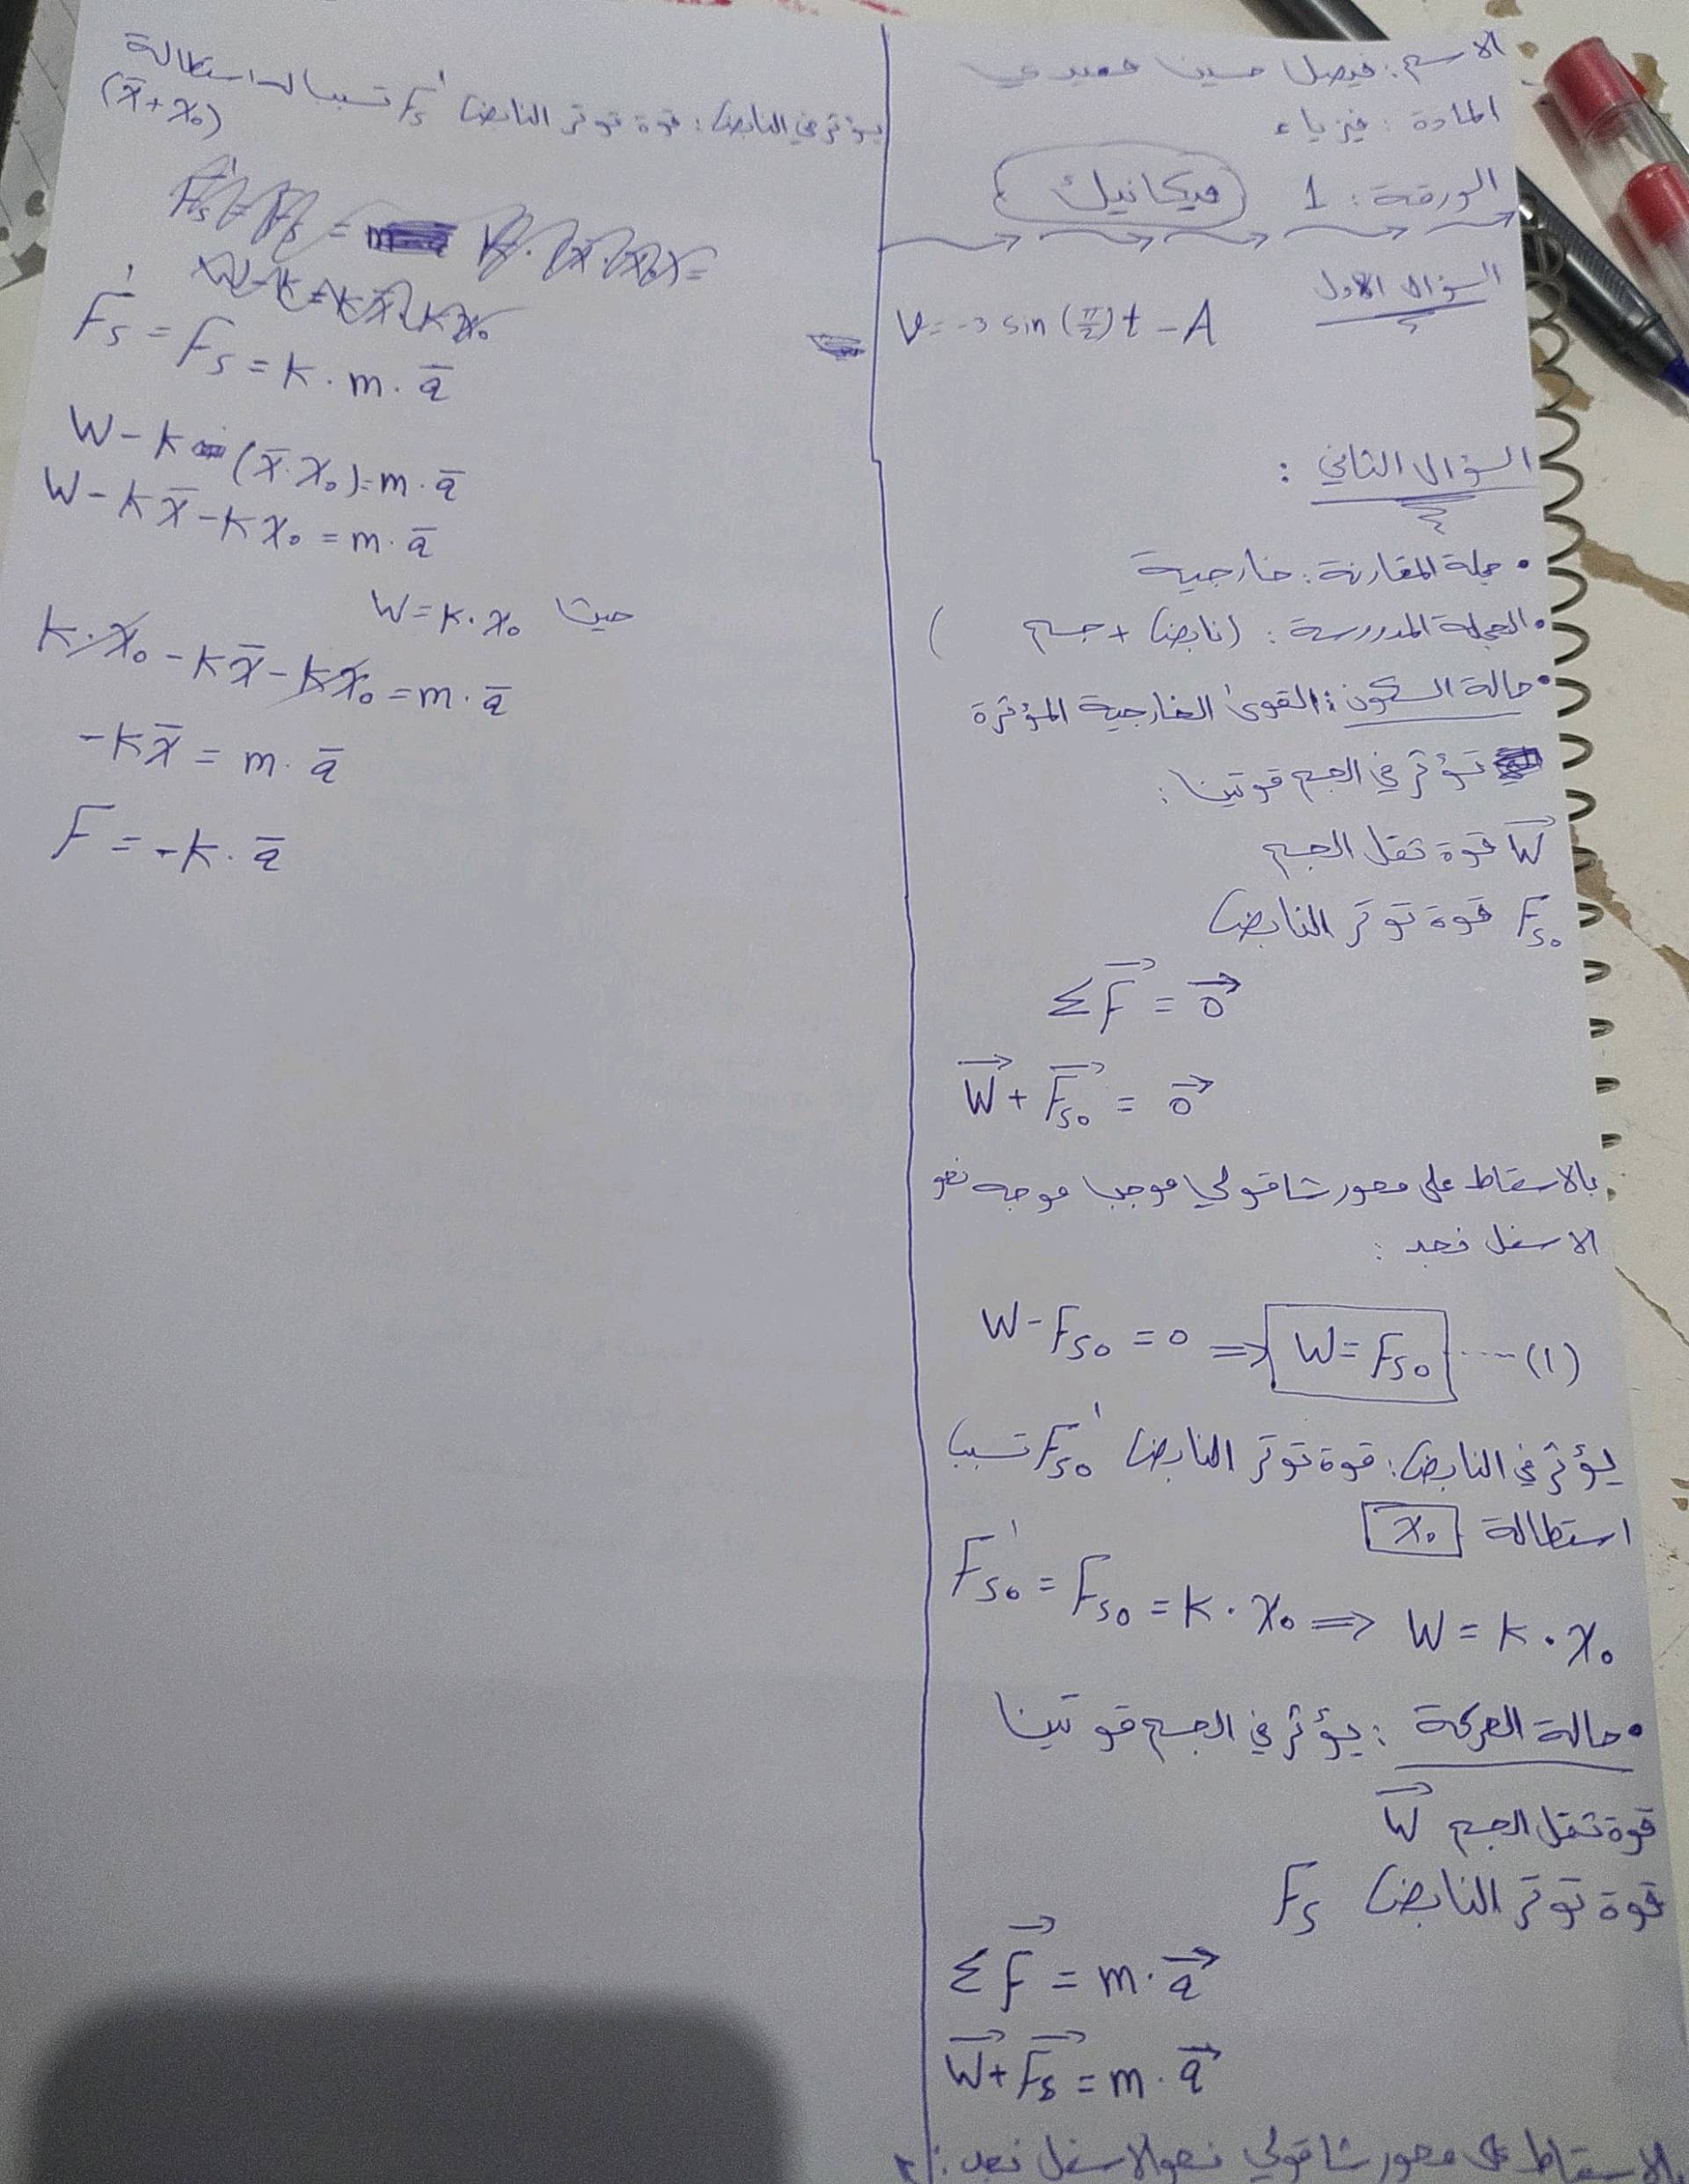 الاسم: فيصل حسين حميدي
المادة: فيزياء
الورقة: 1 ميكانيك
السؤال الاول
V = -3 sin (π/2) t - A
السؤال الثاني:
• جملة المقارنة: خارجية
• الجملة المدروسة: (نابض + جسم)
• حالة السكون: القوى الخارجية المؤثرة
تؤثر في الجسم قوتين:
W⃗ قوة ثقل الجسم
F⃗s₀ قوة توتر النابض
ΣF⃗ = 0⃗
W⃗ + F⃗s₀ = 0⃗
بالاسقاط على محور شاقولي موجب موجه نحو
الاسفل نجد:
W - Fs₀ = 0 ⇒ W = Fs₀ ..... (1)
يؤثر في النابض: قوة توتر النابض F's₀ تسبب
استطالة x₀
F's₀ = Fs₀ = k . x₀ ⇒ W = k . x₀
• حالة الحركة: يؤثر في الجسم قوتين
قوة ثقل الجسم W⃗
قوة توتر النابض Fs
ΣF⃗ = m . a⃗
W⃗ + F⃗s = m . a⃗
بالاسقاط على محور شاقولي نحو الاسفل نجد:
يؤثر في النابض: قوة توتر النابض F's تسبب له استطالة
(x̄ + x₀)
F's = Fs = k . m . ā
W - k (x̄ . x₀) = m . ā
W - k x̄ - k x₀ = m . ā
حيث W = k . x₀
k . x₀ - k x̄ - k x₀ = m . ā
- k x̄ = m . ā
F = - k . ā